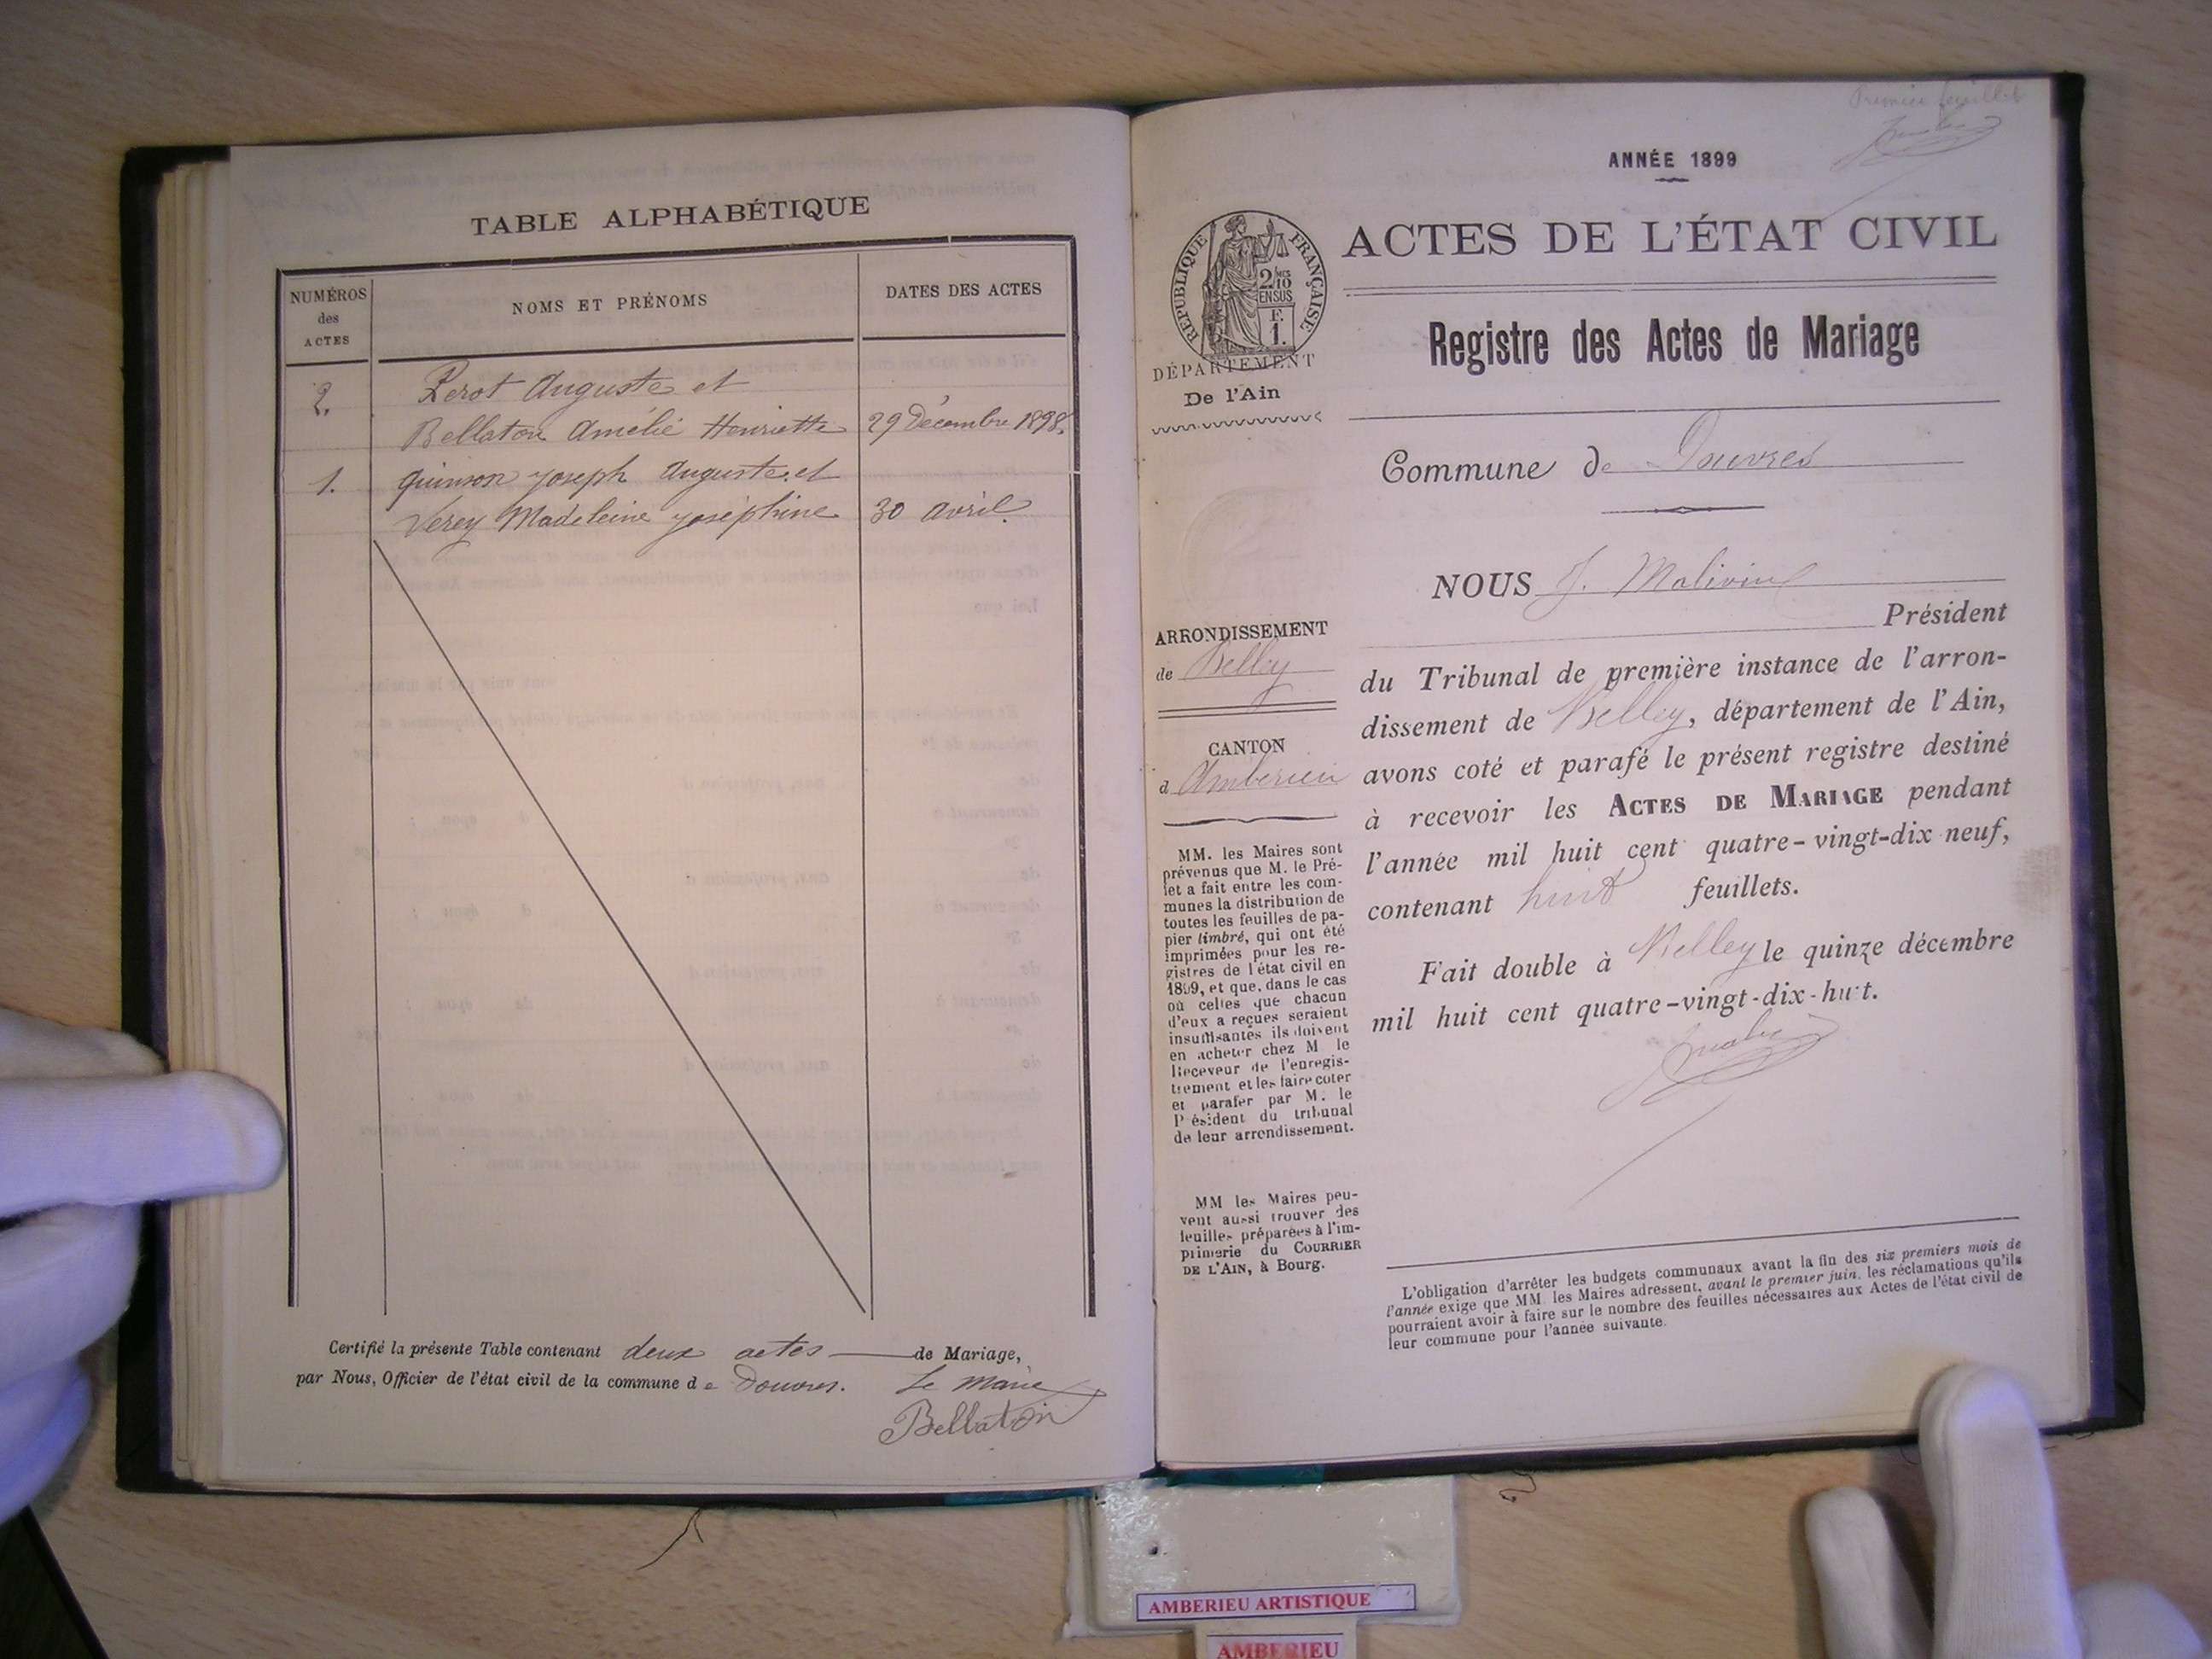 TABLE ALPHABÉTIQUE
NUMÉROS
des
ACTES
NOMS ET PRÉNOMS
DATES DES ACTES
2.
Perot Auguste et
Bellaton Amélie Henriette
29 Décembre 1898.
1.
Quinson Joseph Auguste et
Verey Madeleine Joséphine
30 avril.
Certifié la présente Table contenant deux actes de Mariage,
par Nous, Officier de l'état civil de la commune de Douvres. Le Maire
Bellaton
Premier feuillet
ANNÉE 1899
RÉPUBLIQUE FRANÇAISE
2/10
EN SUS
F.
1.
ACTES DE L'ÉTAT CIVIL
DÉPARTEMENT
De l'Ain
Registre des Actes de Mariage
Commune de Douvres
ARRONDISSEMENT
de Belley
CANTON
d Amberieu
MM. les Maires sont
prévenus que M. le Pré-
fet a fait entre les com-
munes la distribution de
toutes les feuilles de pa-
pier timbré, qui ont été
imprimées pour les re-
gistres de l'état civil en
1899, et que, dans le cas
où celles que chacun
d'eux a reçues seraient
insuffisantes ils doivent
en acheter chez M le
Receveur de l'enregis-
trement et les faire coter
et parafer par M. le
Président du tribunal
de leur arrondissement.
MM les Maires peu-
vent aussi trouver des
feuilles préparées à l'im-
primerie du COURRIER
DE L'AIN, à Bourg.
NOUS J. Malivin
Président
du Tribunal de première instance de l'arron-
dissement de Belley, département de l'Ain,
avons coté et parafé le présent registre destiné
à recevoir les ACTES DE MARIAGE pendant
l'année mil huit cent quatre-vingt-dix neuf,
contenant huit feuillets.
Fait double à Belley le quinze décembre
mil huit cent quatre-vingt-dix-huit.
L'obligation d'arrêter les budgets communaux avant la fin des six premiers mois de
l'année exige que MM. les Maires adressent, avant le premier juin, les réclamations qu'ils
pourraient avoir à faire sur le nombre des feuilles nécessaires aux Actes de l'état civil de
leur commune pour l'année suivante.
AMBERIEU ARTISTIQUE
AMBERIEU